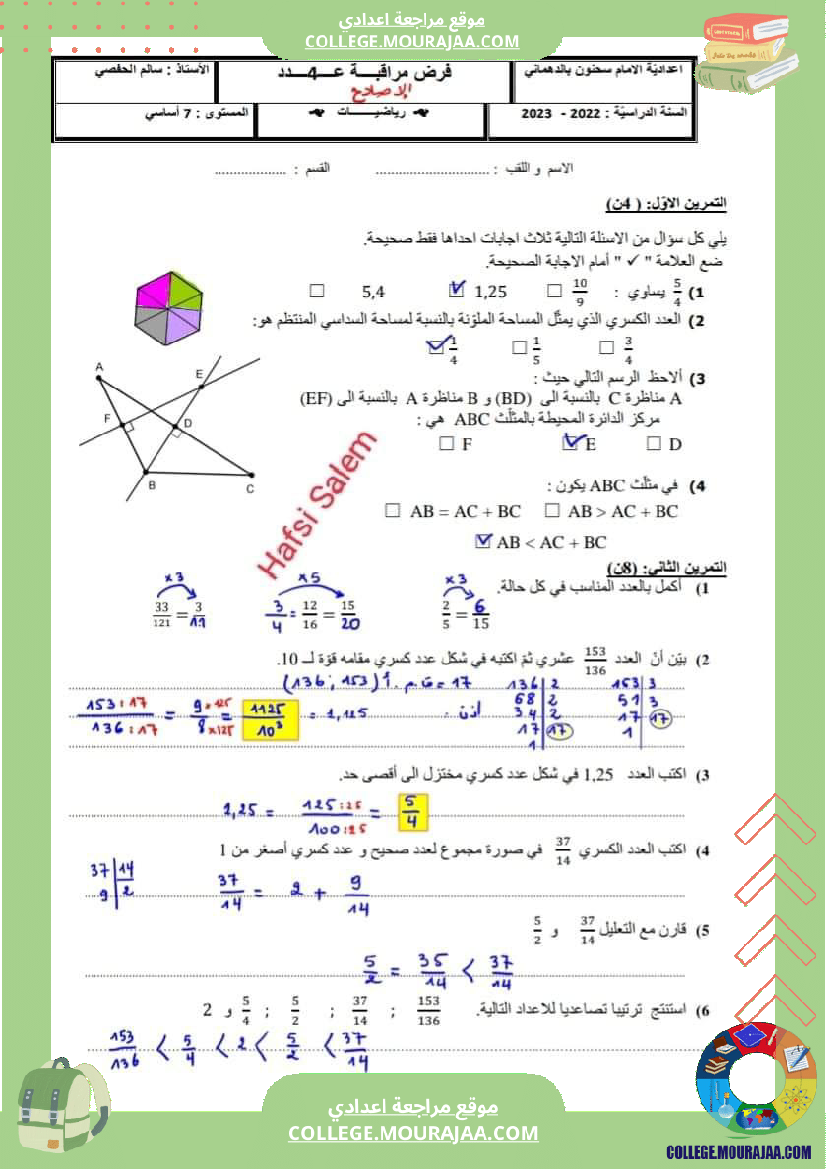 موقع مراجعة اعدادي
COLLEGE.MOURAJAA.COM
اعداديّة الامام سحنون بالدهماني
فرض مراقبـــة عـــ4ـــدد
الاصلاح
الأستاذ : سالم الحفصي
السنة الدراسيّة : 2022 - 2023
رياضيـــــات
المستوى : 7 أساسي
الاسم و اللقب : .............................. القسم : ...................
التمرين الاوّل: ( 4ن)
يلي كل سؤال من الاسئلة التالية ثلاث اجابات احداها فقط صحيحة.
ضع العلامة " ✓ " أمام الاجابة الصحيحة.
1) 5/4 يساوي : 10/9 ☐ 1,25 ☑ 5,4 ☐
2) العدد الكسري الذي يمثّل المساحة الملوّنة بالنسبة لمساحة السداسي المنتظم هو:
☑ 1/4 ☐ 1/5 ☐ 3/4
3) ألاحظ الرسم التالي حيث :
A مناظرة C بالنسبة الى (BD) و B مناظرة A بالنسبة الى (EF)
مركز الدائرة المحيطة بالمثلّث ABC هي :
☐ F ☑ E ☐ D
A
E
F
D
B
C
Hafsi Salem
4) في مثلّث ABC يكون :
☐ AB = AC + BC ☐ AB > AC + BC
☑ AB < AC + BC
التمرين الثاني: (8ن)
1) أكمل بالعدد المناسب في كل حالة.
x3 x5 x3
33/121 = 3/11 3/4 = 12/16 = 15/20 2/5 = 6/15
2) بيّن أنّ العدد 153/136 عشري ثمّ اكتبه في شكل عدد كسري مقامه قوّة لـ 10.
17 = ق.م.أ (153 ; 136)
136 | 2 153 | 3
68 | 2 51 | 3
34 | 2 17 | 17
17 | 17 1
1
إذن :
153:17/136:17 = 9×125/8×125 = 1125/10³ = 1,125
3) اكتب العدد 1,25 في شكل عدد كسري مختزل الى أقصى حد.
1,25 = 125:25/100:25 = 5/4
4) اكتب العدد الكسري 37/14 في صورة مجموع لعدد صحيح و عدد كسري أصغر من 1
37 | 14
9 | 2
37/14 = 2 + 9/14
5) قارن مع التعليل 37/14 و 5/2
5/2 = 35/14 < 37/14
6) استنتج ترتيبا تصاعديا للاعداد التالية. 153/136 ; 37/14 ; 5/2 ; 5/4 و 2
153/136 < 5/4 < 2 < 5/2 < 37/14
موقع مراجعة اعدادي
COLLEGE.MOURAJAA.COM
COLLEGE.MOURAJAA.COM